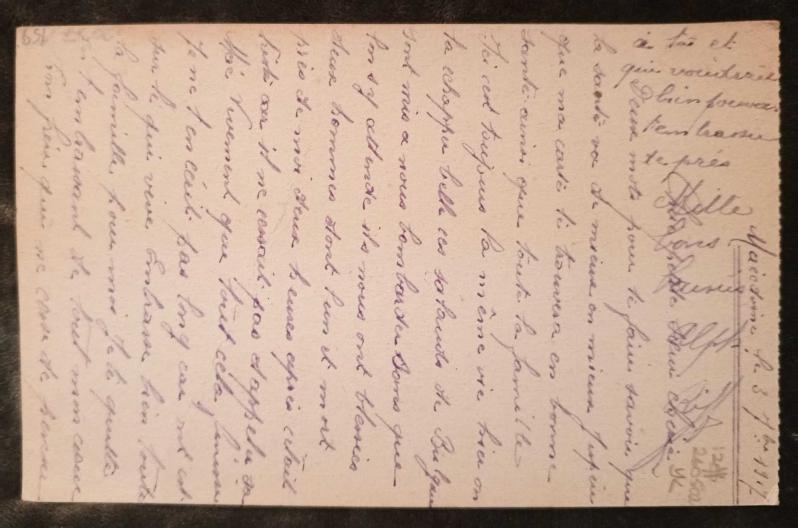 Macédoine le 3 7bre 1917
petite Soeur chérie
Deux mots pour te faire savoir que
la santé va de mieux en mieux J'espère
que ma carte te trouvera en bonne
santé ainsi que toute la famille
Ici est toujours la même vie hier on
l'a échappé belle ces salauds de Bulgares
ont mis a nous bombarder sans que
l'on s'y attende ils nous ont blessés
deux hommes dont l'un est mort
près de moi deux heures après c'était
triste car il ne cessait pas d'appeler sa
Mère Vivement que tout cela finisse
Je ne t'en écrit pas long car on est
sur le qui vive Embrasse bien toute
la famille pour moi je te quitte
en t'embrassant de tout mon coeur
ton frère qui ne cesse de penser
à toi et
qui voudrait
bien pouvoir
t'embrasser
de près
Mille
bons
baisers
Alph